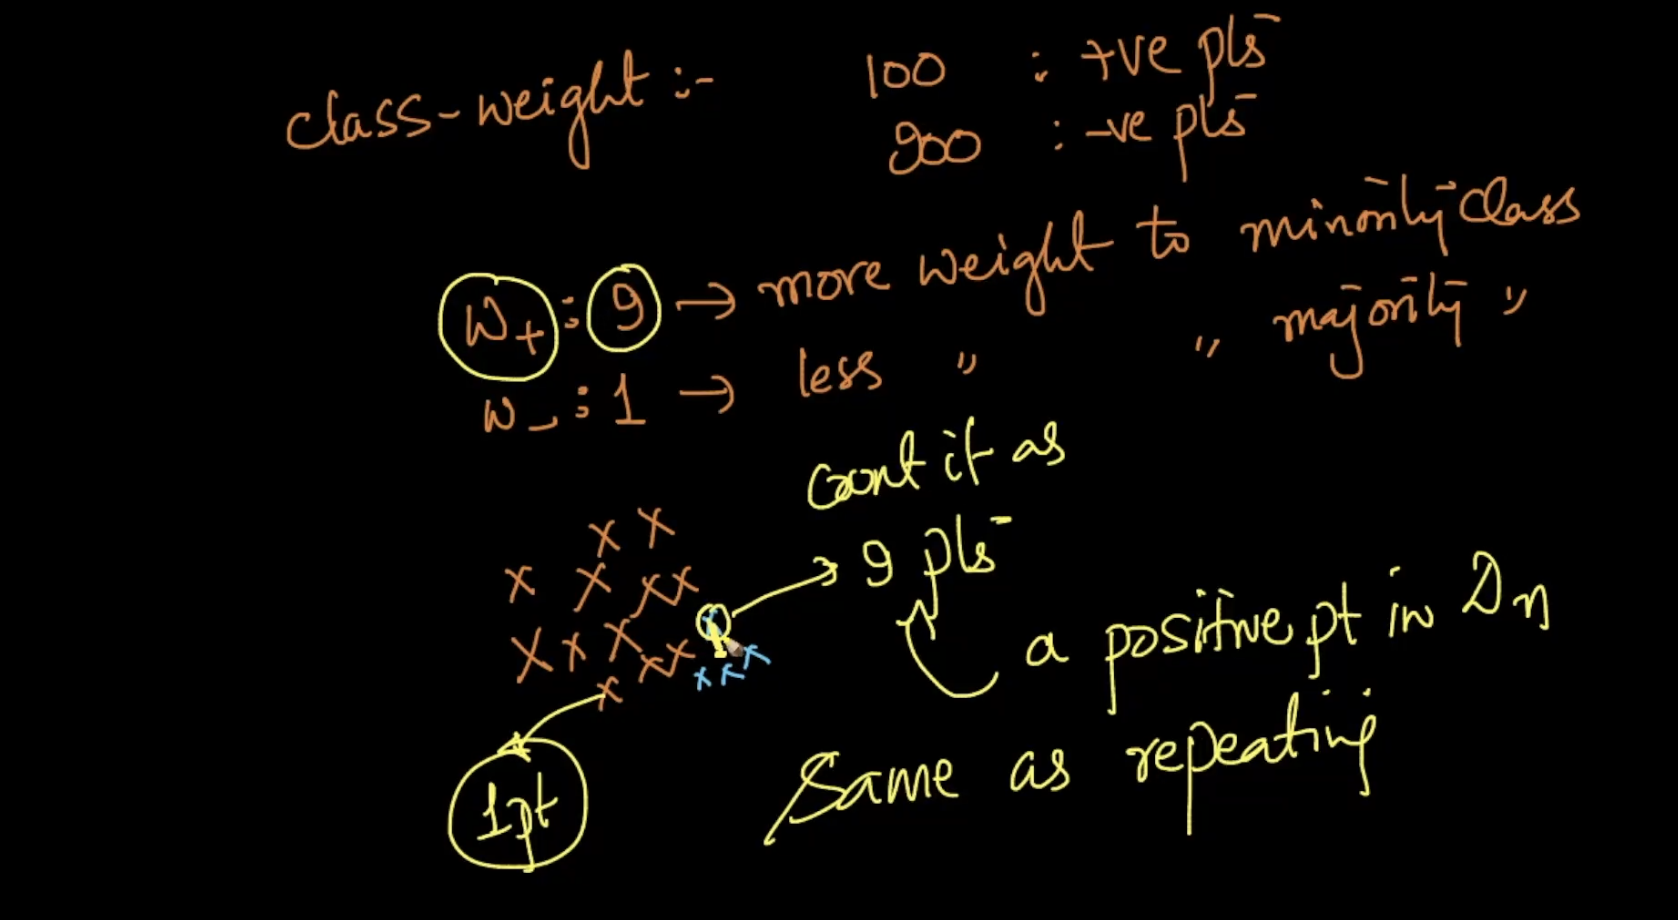 class-weight :- 100 : +ve pts
900 : -ve pts
W+ : 9 → more weight to minority class
W- : 1 → less " " majority "
count it as
9 pts
a positive pt in Dn
1pt
Same as repeating